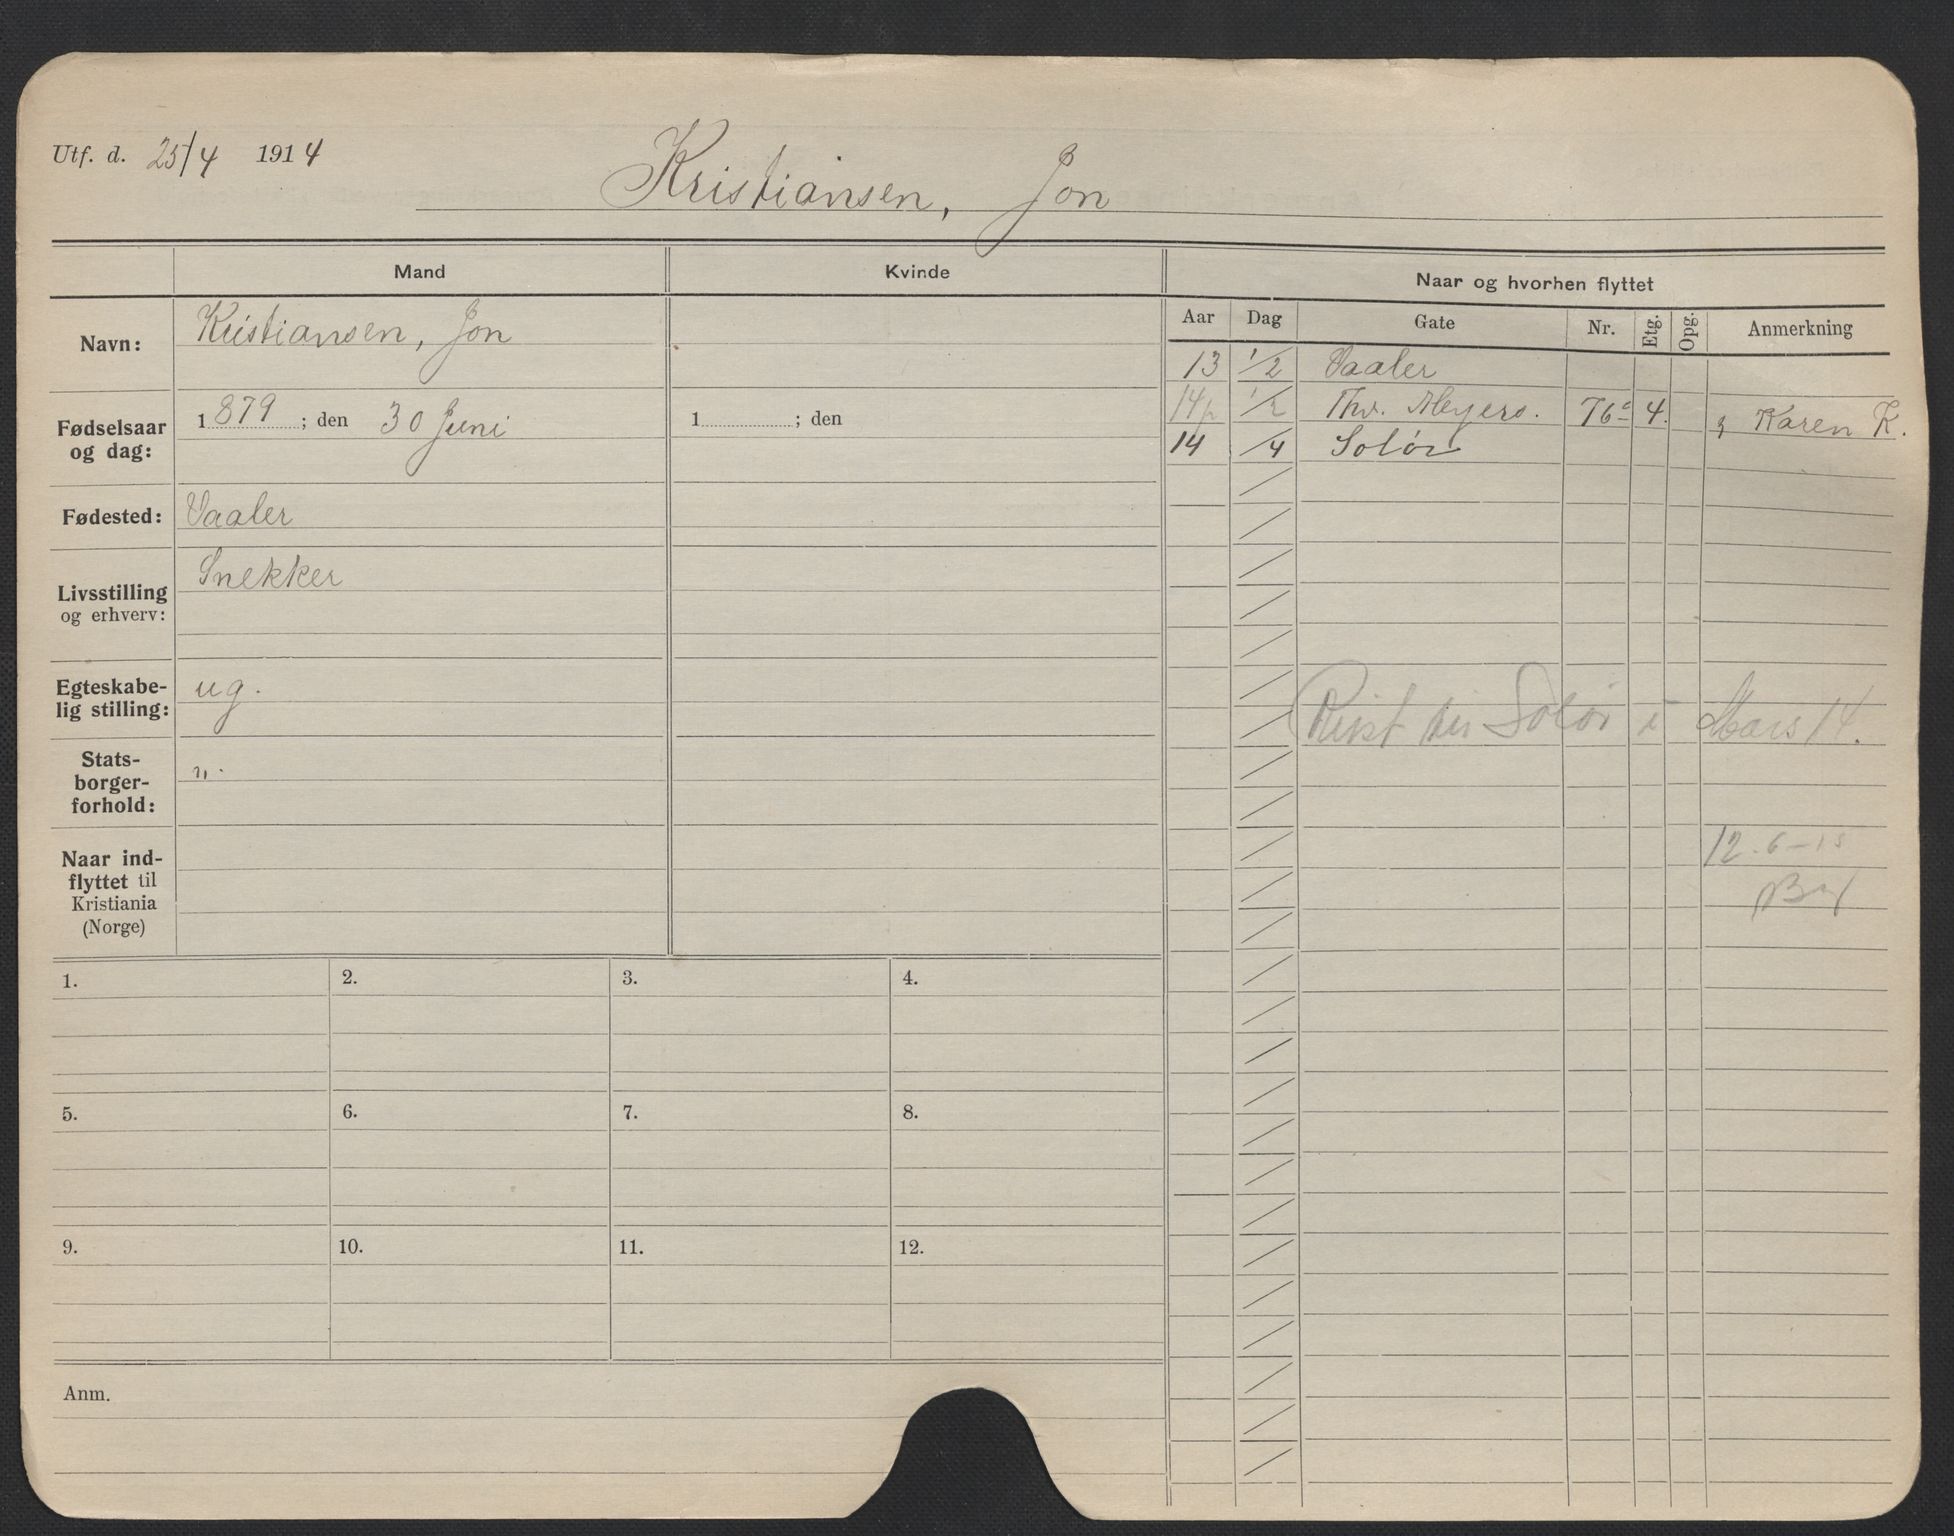 Utf. d. 25/4 1914
Kristiansen, Jon
Mand
Kvinde
Naar og hvorhen flyttet
Aar Dag Gate Nr. Etg. Opg. Anmerkning
Navn: Kristiansen, Jon
Fødselsaar og dag: 1879; den 30 Juni
1 ; den
Fødested: Vaaler
Livsstilling og erhverv: Snekker
Egteskabe-
lig stilling: ug.
Stats-
borger-
forhold: n.
Naar ind-
flyttet til
Kristiania
(Norge)
13 1/2 Vaaler
14 1/2 Thv. Meyers. 76 c 4. Karen K.
14 /4 Solør
Reist til Solør i Mars 14.
12-6-15
1.
2.
3.
4.
5.
6.
7.
8.
9.
10.
11.
12.
Anm.